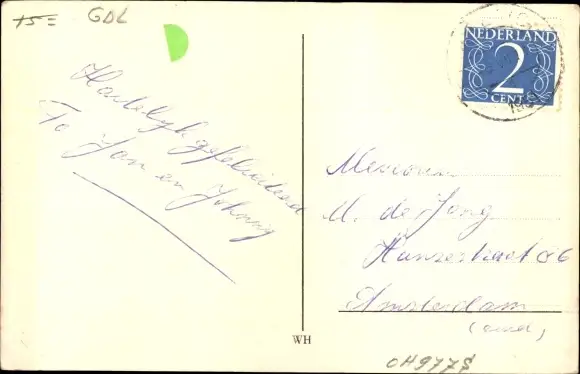 15=
GDL
Hartelijk gefeliciteerd
To Jan en Johnny
NEDERLAND
2
CENT
Mevrouw
M. de Jong
86
Amsterdam
WH
OH977$